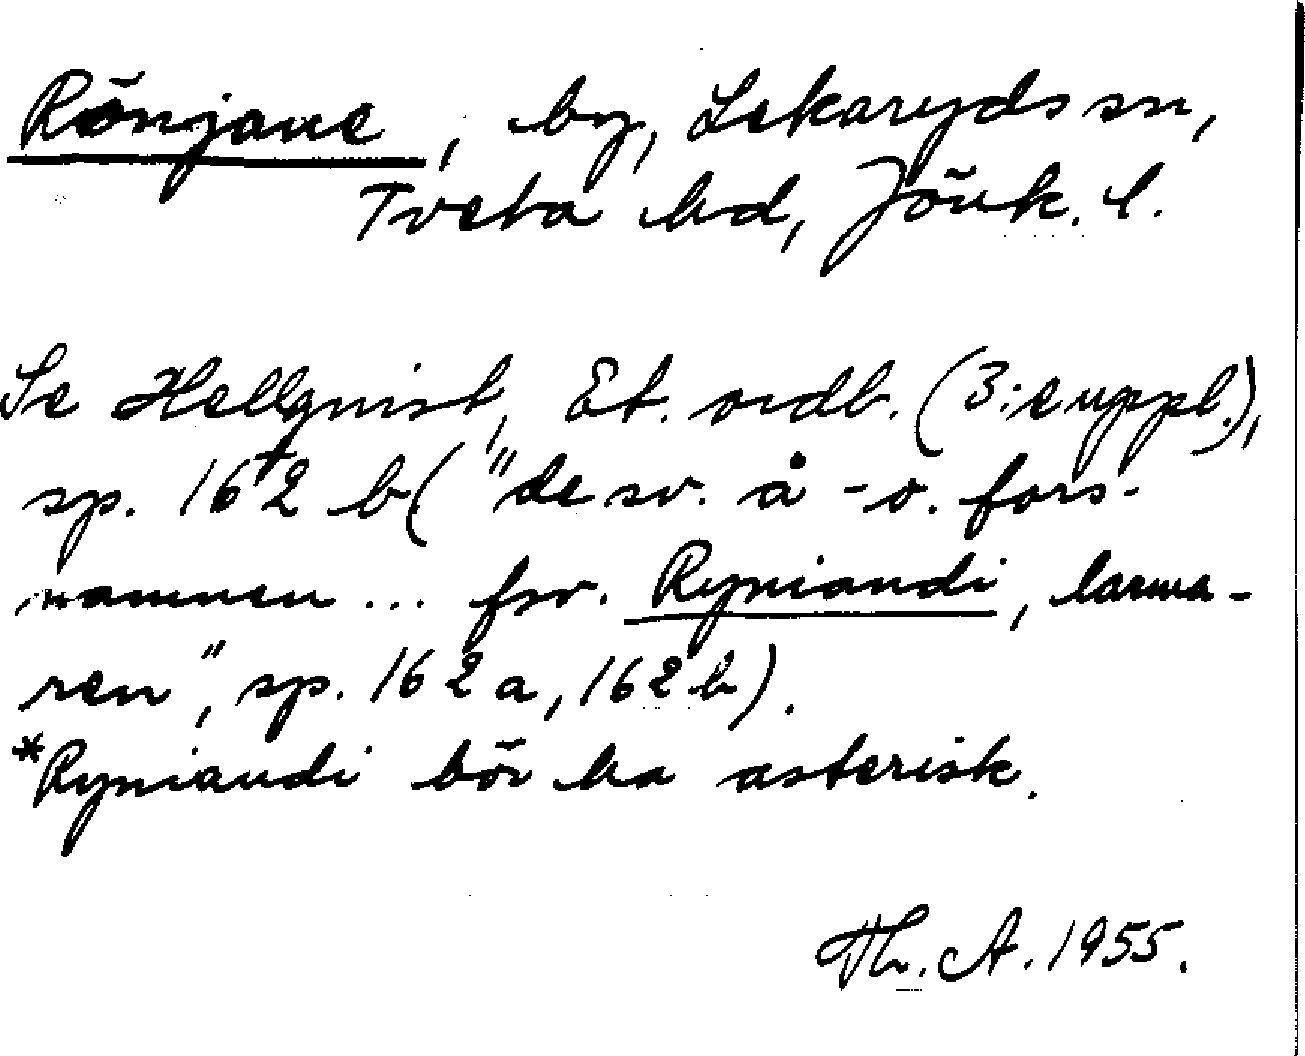 Rönjane, by, Lekaryds sn,
Tveta hd, Jönk. l.
Se Hellquist, Et. ordb. (3:e uppl.),
sp. 162 b ("de sv. å- o. fors-
namnen... fsv. Ryniandi, larma-
ren", sp. 162 a, 162 b).
*Ryniandi bör ha asterisk.
Th. A. 1955.